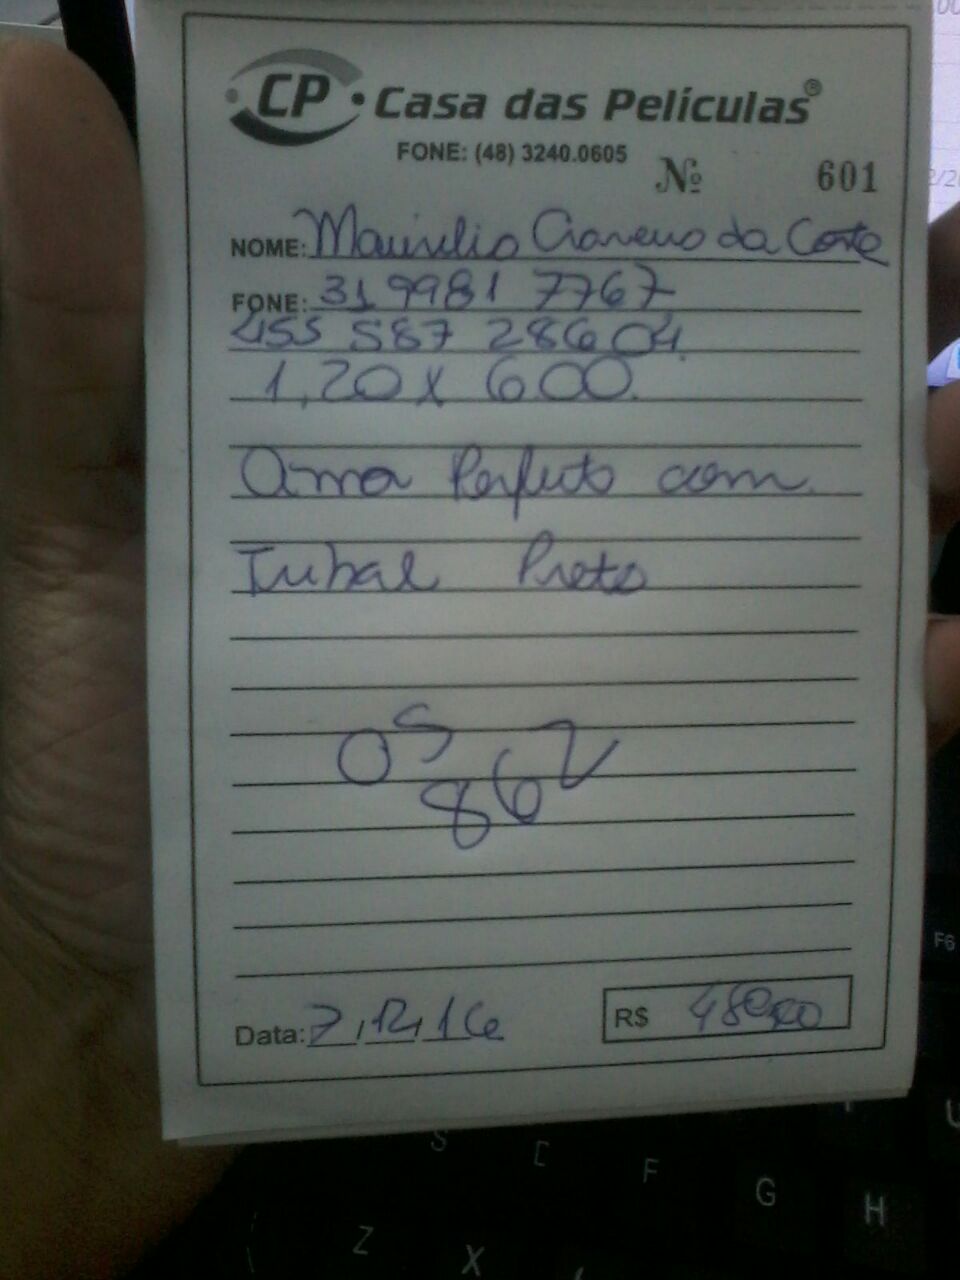 CP Casa das Películas®
FONE: (48) 3240.0605
Nº 601
NOME: Maurilio da Costa
FONE: 31 9981 7767
455 587 286 04
1,20 x 600
com
Preto
OS
862
Data: 7,12,16
R$ 480,00
F6
U
S F G H
Z X